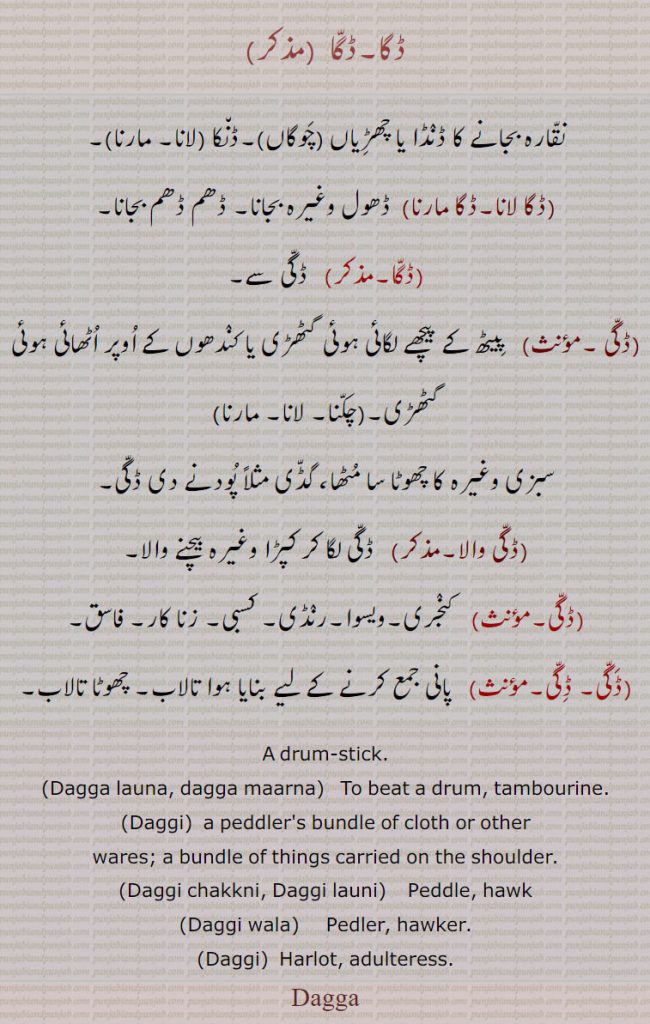 ڈگا۔ڈگّا (مذکر)
نقّارہ بجانے کا ڈنْڈا یا چھڑِیاں (چَوگاں)۔ڈنْکا (لانا۔ مارنا)۔
(ڈگا لانا۔ڈگا مارنا) ڈھول وغیرہ بجانا۔ ڈھم ڈھم بجانا۔
(ڈگّا۔مذکر) ڈگّی سے۔
(ڈگّی ۔مؤنث) پِیٹھ کے پیچھے لگائی ہوئی گٹھڑی یا کنْدھوں کے اُوپر اُٹھائی ہوئی
گٹھڑی۔(چکّنا۔ لانا۔ مارنا)
سبزی وغیرہ کا چھوٹا سا مُٹھا، گڈّی مثلاً پُودنے دی ڈگّی۔
(ڈگّی والا۔مذکر) ڈگّی لگا کر کپڑا وغیرہ بیچنے والا۔
(ڈگّی۔مؤنث) کنْجری۔ویسوا۔رنْڈی۔ کسبی۔ زنا کار۔ فاسق۔
(ڈَگّی۔ ڈِگّی۔مؤنث) پانی جمع کرنے کے لیے بنایا ہوا تالاب۔ چھوٹا تالاب۔
A drum-stick.
(Dagga launa, dagga maarna) To beat a drum, tambourine.
(Daggi) a peddler's bundle of cloth or other
wares; a bundle of things carried on the shoulder.
(Daggi chakkni, Daggi launi) Peddle, hawk
(Daggi wala) Pedler, hawker.
(Daggi) Harlot, adulteress.
Dagga